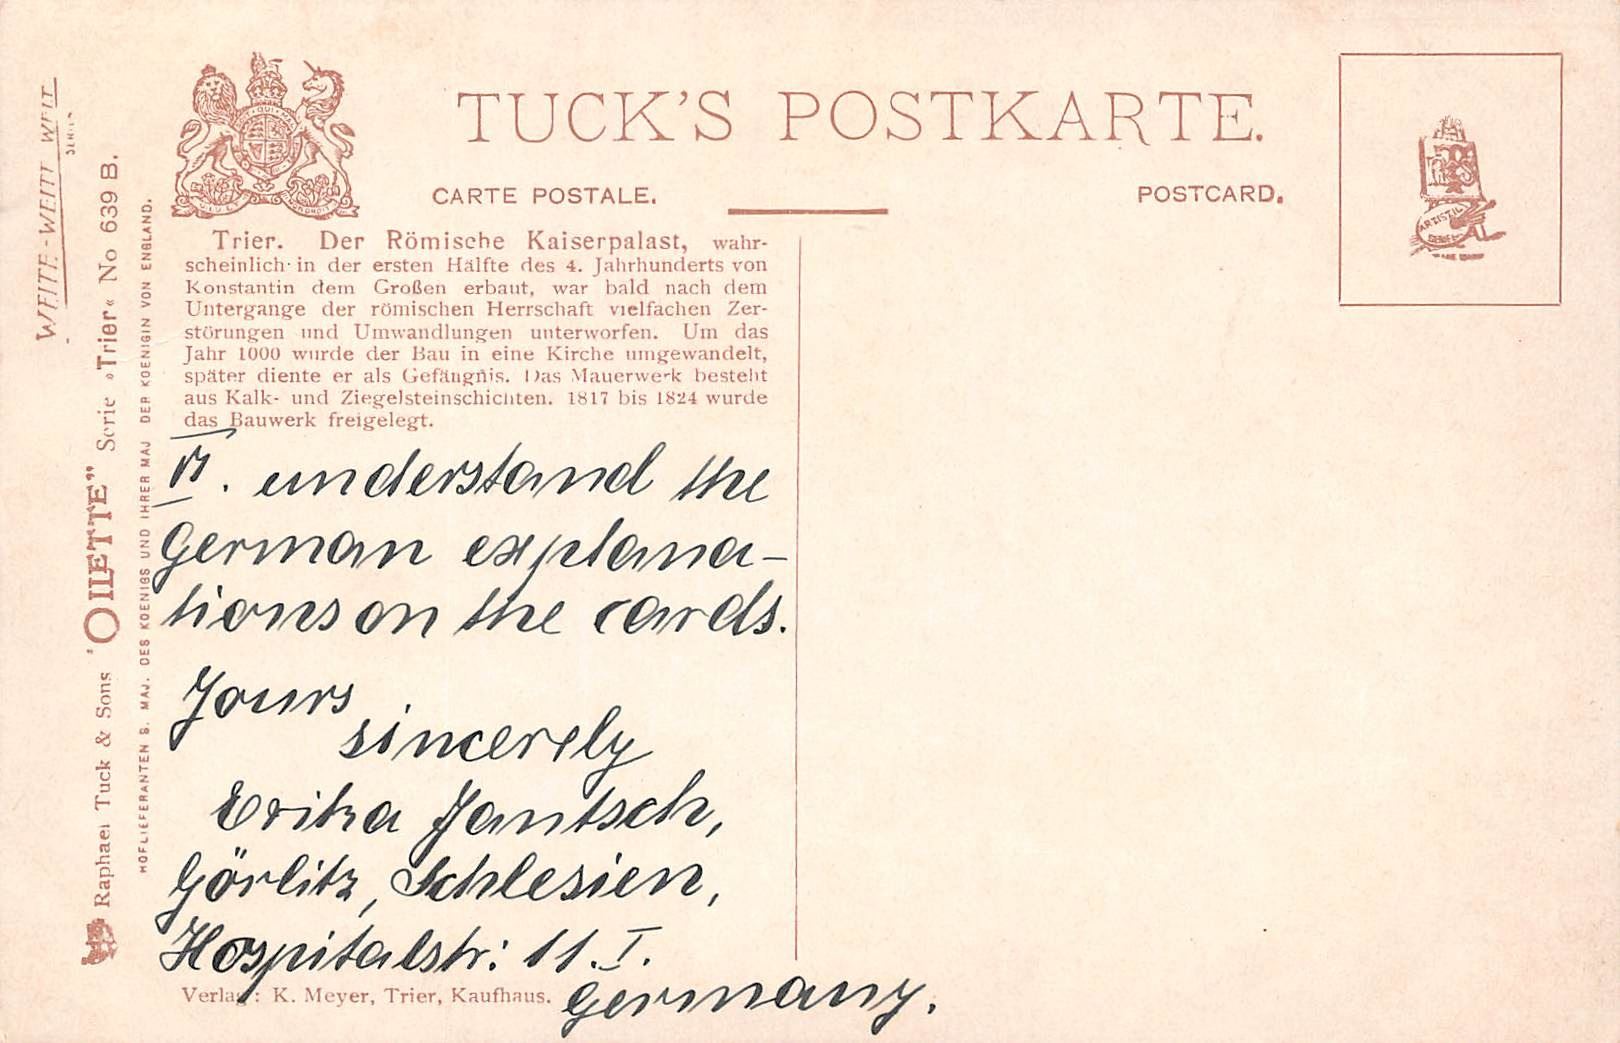 TUCK'S POSTKARTE.
CARTE POSTALE.
POSTCARD.
Trier. Der Römische Kaiserpalast, wahr-
scheinlich in der ersten Hälfte des 4. Jahrhunderts von
Konstantin dem Großen erbaut, war bald nach dem
Untergange der römischen Herrschaft vielfachen Zer-
störungen und Umwandlungen unterworfen. Um das
Jahr 1000 wurde der Bau in eine Kirche umgewandelt,
später diente er als Gefängnis. Das Mauerwerk besteht
aus Kalk- und Ziegelsteinschichten. 1817 bis 1824 wurde
das Bauwerk freigelegt.
VI. understand the
German explana-
tions on the cards.
Yours
sincerely
Erika Jantsch,
Görlitz, Schlesien,
Hospitalstr: 11. I.
Germany.
Verlag: K. Meyer, Trier, Kaufhaus.
Raphael Tuck & Sons "OILETTE" Serie »Trier« No 639 B.
HOFLIEFERANTEN S. MAJ. DES KOENIGS UND IHRER MAJ DER KOENIGIN VON ENGLAND.
ARTISTIC